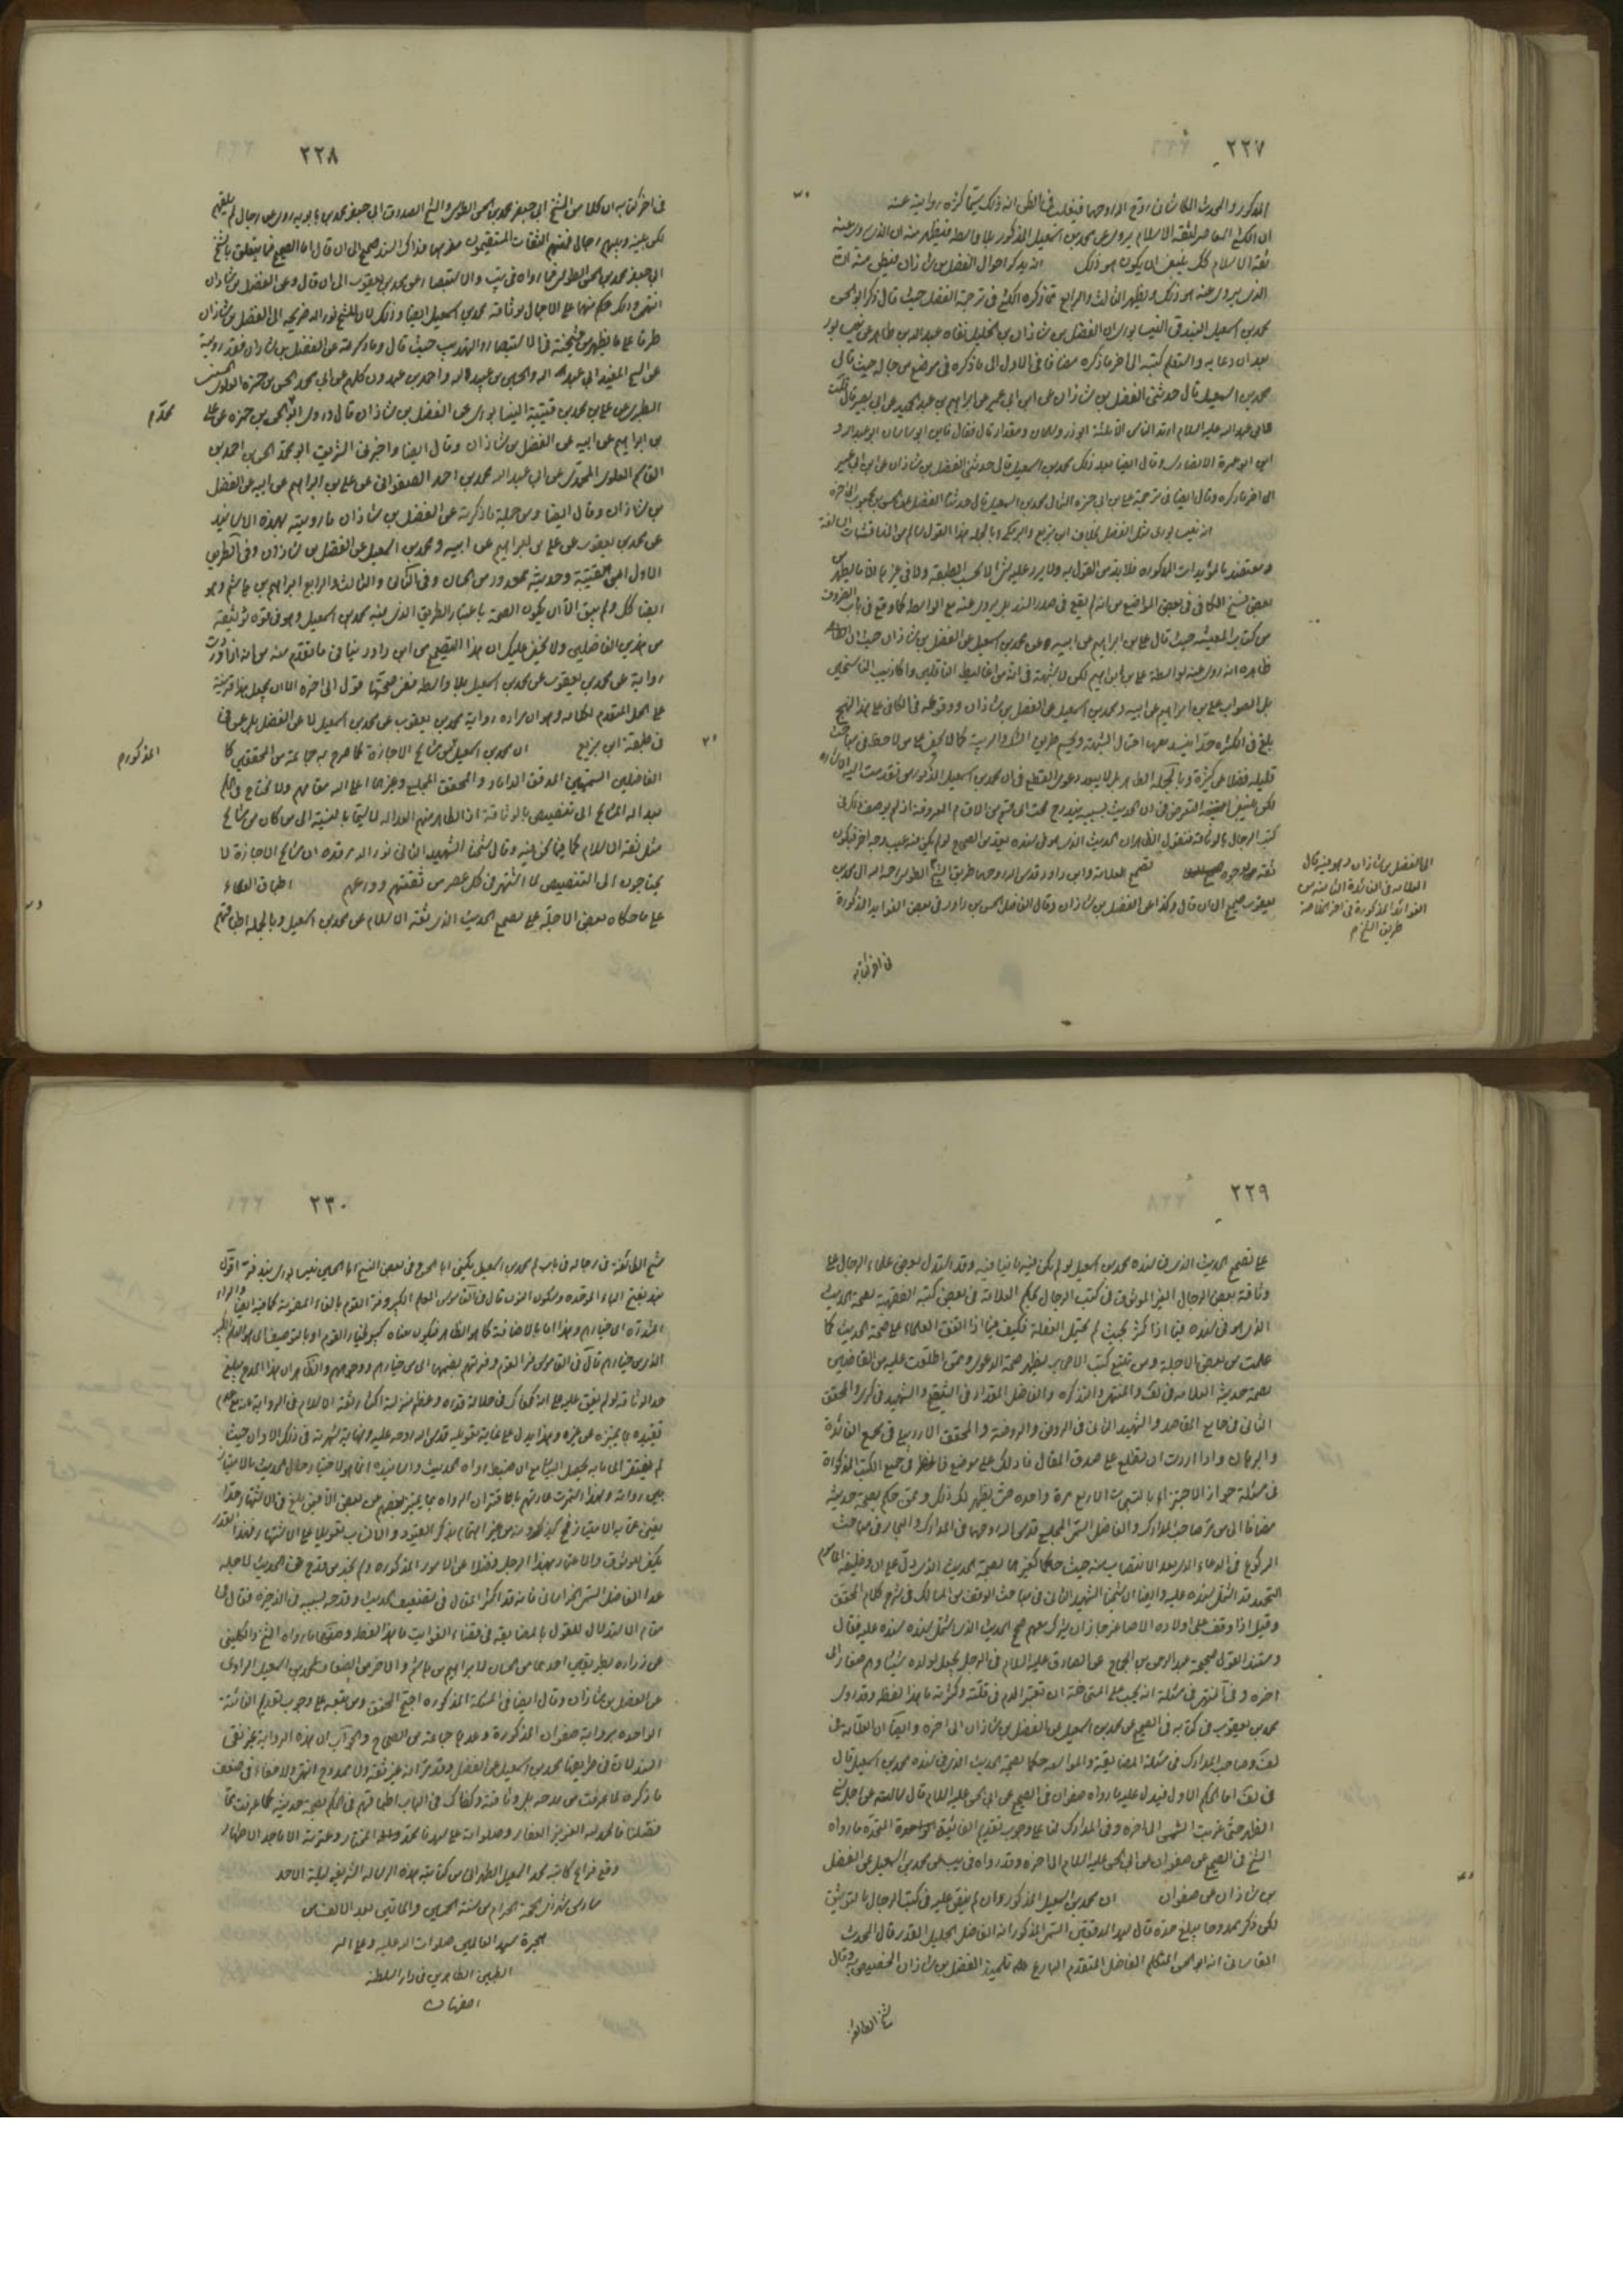 ٢٢٧
المذكور والمحدث الكاشاني روح الله روحهما فيغلب في الظن انه ذلك سيما كثرة روايته عنه
ان الكشي المعاصر لثقة الاسلام يروي عن محمد بن اسمعيل المذكور بلا واسطة فيظهر منه ان الذي يروي عنه
ثقة الاسلام كك ينبغي ان يكون هو ذلك انه يذكر احوال الفضل بن شاذان فيظن منه ان
الذي يروي عنه هو ذلك ويظهر الثالث والرابع مما ذكره الكشي في ترجمة الفضل حيث قال ذكر ابو الحسن
محمد بن اسمعيل البندقي النيسابوري ان الفضل بن شاذان بن الخليل نفاه عبد الله بن طاهر عن نيسابور
بعد ان دعا به واستعلم كتبه الى اخر ما ذكره مضافا في الاول الى ما ذكره في موضع من رجاله حيث قال
محمد بن اسمعيل قال حدثني الفضل بن شاذان عن ابن ابي عمير عن ابراهيم بن عبد الحميد عن ابي بصير قال قلت
لابي عبد الله عليه السلام ارتد الناس الا ثلثة ابو ذر وسلمان ومقداد قال فقال فاين ابو ساسان ابو عبد الله و
ابو عمرة الانصاري وقال ايضا بعد ذلك محمد بن اسمعيل قال حدثني الفضل بن شاذان عن ابن ابي عمير
الى اخر ما ذكره وقال ايضا في ترجمة علي بن ابي حمزة الثمالي محمد بن اسمعيل قال حدثنا الفضل عن الحسن بن محبوب الى اخره
انه نيسابوري مثل الفضل بخلاف ابن بزيع والبرمكي وبالجملة هذا القول سالم من المناقشات السالفة
ومعتضد بالمؤيدات المذكورة فلا بد من القول به ولا يرد عليه شئ الا بحسب الطبقة ولا في غيرها الا ما يظهر من
بعض نسخ الكافي في بعض المواضع من انه لم يقع في صدر السند بل يروي عنه مع الواسطة كما وقع في باب المعروف
من كتاب المعيشة حيث قال علي بن ابراهيم عن ابيه عن محمد بن اسمعيل عن الفضل بن شاذان حيث ان
ظاهره انه روى عنه بواسطة علي بن ابراهيم لكن لا شبهة في انه من اغاليط الناقلين واكاذيب الناسخين
بل الصواب علي بن ابراهيم عن ابيه ومحمد بن اسمعيل عن الفضل بن شاذان ووقوعه في الكافي على هذا النهج
بلغ في الكثرة حدا ينسد معها احتمال الشبهة ويحسم طريق الشك والريبة كما لا يخفى على من لاحظ في مباحث
قليلة فضلا عن كثيرة وبالجملة الظاهر بل لا يبعد دعوى القطع في ان محمد بن اسمعيل المذكور من تقدمت اليه الاشارة
لكن ينبغي التعرض في ان الحديث بسببه يندرج تحت اي قسم من الاقسام المعروفة اذ لم يوصف ذكر في
كتب الرجال بالوثاقة فنقول الظاهر ان الحديث الذي هو في سنده يعد من الصحيح لو لم يكن فيه عيب وجه اخر فيكون
ثقة تصحيح العلامة وابن داود قدس الله روحهما طريق الشيخ الطوسي رحمه الله الى محمد بن
يعقوب صحيح الى ان قال وكذا عن الفضل بن شاذان وقال الفاضل الحسن بن داود في بعض الفوائد المذكورة
الى الفضل بن شاذان وهو فيه قال
العلامة في الفائدة الثامنة من
الفوائد المذكورة في اخر الخلاصة
طريق الشيخ م
في اخر كتابه
٢٢٨
في اخر كتابه ان كلا من الشيخ ابي جعفر محمد بن الحسن الطوسي والشيخ الصدوق ابي جعفر محمد بن بابويه روى عن رجال لم يلقهم
لكن بينه وبينهم رجال فمنهم الثقات المستقيمون الى ان قال اما الصحيح فما يتعلق بالشيخ
ابي جعفر محمد بن الحسن الطوسي فما رواه في يب والاستبصار عن محمد بن يعقوب الى ان قال وعن الفضل بن شاذان
انتهى وذلك حكم منهما على الاجمال بوثاقة محمد بن اسمعيل ايضا وذلك لان للشيخ نور الله ضريحه الى الفضل بن شاذان
طرقا على ما يظهر من مشيخته في الاستبصار والتهذيب حيث قال وما ذكرته عن الفضل بن شاذان فقد رويته
عن الشيخ المفيد ابي عبد الله والحسين بن عبيد الله واحمد بن عبدون كلهم عن ابي محمد الحسن بن حمزة العلوي الحسيني
الطبري عن علي بن محمد بن قتيبة النيسابوري عن الفضل بن شاذان قال وروى ابو محمد الحسن بن حمزة عن علي
بن ابراهيم عن ابيه عن الفضل بن شاذان وقال ايضا واخبرني الشريف ابو محمد الحسن بن احمد بن
القاسم العلوي المحمدي عن ابي عبد الله محمد بن احمد الصفواني عن علي بن ابراهيم عن ابيه عن الفضل
بن شاذان وقال ايضا ومن جملة ما ذكرته عن الفضل بن شاذان ما رويته بهذه الاسانيد
عن محمد بن يعقوب عن علي بن ابراهيم عن ابيه ومحمد بن اسمعيل عن الفضل بن شاذان وفي الطريق
الاول ابن القتيبة وحديثه معدود من الحسان وفي الثاني والثالث والرابع ابراهيم بن هاشم وهو
ايضا كك ولم يبق الا ان يكون الصحة باعتبار الطريق الذي فيه محمد بن اسمعيل وهو في قوة توثيقه
من هذين الفاضلين ولا يخفى عليك ان هذا التصحيح من ابن داود ينافي ما تقدم منه من انه اذا وردت
رواية عن محمد بن يعقوب عن محمد بن اسمعيل بلا واسطة ففي صحتها قول الى اخره الا ان يجعل هذا قرينة
على الحمل المتقدم لكلامه وهو ان مراده رواية محمد بن يعقوب عن محمد بن اسمعيل لا عن الفضل بل عمن
في طبقة ابن بزيع ان محمد بن اسمعيل من مشايخ الاجازة كما صرح به جماعة من المحققين كا
الفاضلين السميين المدقق الداماد والمحقق المجلسي وغيرهما اعلى الله مقامهم ولا يحتاج
مشايخ الى تنصيص بالوثاقة اذ الظاهر منهم العدالة لا سيما بالنسبة الى من كان من مشايخ
مثل ثقة الاسلام كما فيما نحن فيه وقال شيخنا الشهيد الثاني نور الله مرقده ان مشايخ الاجازة لا
يحتاجون الى التنصيص لما اشتهر في كل عصر من ثقتهم وورعهم اطباق العلماء
على ما حكاه بعض الاجلة على تصحيح الحديث الذي ثقة الاسلام عن محمد بن اسمعيل وبالجملة اطباقهم
محمد م
المذكور م
٢٢٩
على تصحيح الحديث الذي في سنده محمد بن اسمعيل لو لم يكن فيه ما ينافيه وقد استدل بعض علماء الرجال على
وثاقة بعض الرجال الغير الموثوق في كتب الرجال بحكم العلامة في بعض كتبه الفقهية بصحة الحديث
الذي هو في سنده فيما اذا كثر بحيث لم يحتمل الغفلة فكيف فيما اذا اتفق العلماء على صحة الحديث كما
علمت من بعض الاجلة ومن تتبع كتب الاصحاب يظهر صحة الدعوى وممن اطلعت عليه من القاضين
بصحة حديثه العلامة في لف والمنتهى والتذكرة والفاضل المقداد في التنقيح والشهيد في كرى والمحقق
الثاني في جامع المقاصد والشهيد الثاني في الروض والروضة والمحقق الاردبيلي في مجمع الفائدة
والبرهان واذا اردت ان تطلع على صدق المقال فادلك على موضع فلاحظ في جميع الكتب المذكورة
في مسئلة جواز الاجتزاء بالتسبيحات الاربع مرة واحدة حتى يظهر لك ذلك وممن حكم بصحة حديثه
مضافا الى من مر صاحب المدارك والفاضل السمي المجلسي قدس الله روحهما في المدارك والبحار في مباحث
الركوع في الدعاء بعد الانتصاب منه حيث حكما كغيرهما بصحة الحديث الذي دل على ان وظيفة المأموم
التحميد قد اشتمل سنده عليه وايضا ان شيخنا الشهيد الثاني في مباحث الوقف من المسالك في شرح كلام المحقق
وقيل اذا وقف على اولاده الاصاغر جاز ان يشرك معهم صحح الحديث الذي اشتمل سنده عليه فقال
ومستند القول صحيحة عبد الرحمن بن الحجاج عن الصادق عليه السلام في الرجل يجعل لولده شيئا وهم صغار الى
اخره وفي المنتهى في مسئلة انه يجب على المستحاضة ان تعتبر الدم في قلته وكثرته ما هذا لفظه وقد روى
محمد بن يعقوب في كتابه في الصحيح عن محمد بن اسمعيل عن الفضل بن شاذان الى اخره وايضا ان العلامة في
لف وصاحب المدارك في مسئلة المضايقة والمواسعة حكما بصحة الحديث الذي في سنده محمد بن اسمعيل قال
في لف اما الحكم الاول فيدل عليه ما رواه صفوان في الصحيح عن ابي الحسن عليه السلام قال سالته عن رجل نسي
الظهر حتى غربت الشمس الى اخره وفي المدارك لنا على وجوب تقديم الفائتة الواحدة المتحدة ما رواه
الشيخ في الصحيح عن صفوان عن ابي الحسن عليه السلام الى اخره وقد رواه في يب عن محمد بن اسمعيل عن الفضل
بن شاذان عن صفوان ان محمد بن اسمعيل المذكور وان لم ينص عليه في كتب الرجال بالتوثيق
لكن ذكر ممدوحا يبلغ حده قال سيد المدققين السمي المذكور انه الفاضل الجليل القدر قال المحدث
القاساني انه ابو الحسن المتكلم الفاضل المتقدم البارع تلميذ الفضل بن شاذان الخصيص به وقال
شيخ الطائفة
٢٣٠
شيخ الطائفة في رجاله في باب لم محمد بن اسمعيل يكنى ابا الحسن وفي بعض النسخ ابا الحسين نيسابوري بندفر اقول
بند بفتح الباء الموحدة وسكون النون قال في القاموس العلم الكبير وفرة القوم بالفاء المضمومة كما فيه ايضا والراء
المشددة اى خيارهم وهذا اما بالاضافة كما هو الظاهر فيكون معناه كبير خيار القوم او بالتوصيف اى هو العلم الكبير
الذي من خيارهم قال في القاموس فر القوم وفرتهم بضمهما اى من خيارهم ووجههم والظاهر ان هذا المدح يبلغ
حد الوثاقة لو لم يفق عليه على انه كفاك في جلالة قدره وعظم منزلته اكثار ثقة الاسلام في الرواية عنه مع عدم
تقييده بما يميزه عن غيره وهذا يدل على غاية تعويله قدس الله روحه عليه ونهاية شهرته في ذلك الاوان حيث
لم يفتقر الى ما به يحصل امتياز مع ان ضبط رواة الحديث واسانيده انما هو لاختيار رجال الحديث بالامتياز
بين رواته ولهذا استمرت عادتهم بالاقتران الرواة بما يميز بعضهم عن بعض الا فيمن بلغ في الاشتهار حدا
يغني عن الامتياز في كل عصر من غير اهتمام بذكر القيود والانساب تعويلا على الاشتهار فهذا القدر
يكفي للوثوق والاعتماد بهذا الرجل فضلا عن الامور المذكورة ولم نجد من قدح في الحديث لاجله
عدا الفاضل السمي الخراساني فانه قد اكثر المقال في تضعيف الحديث وقدحه بسببه في الذخيرة فقال في
مقام الاستدلال للقول بالمضايقة في قضاء الفوائت ما هذا لفظه ومنها ما رواه الشيخ والكليني
عن زرارة بطريقين احدهما من الحسان لابراهيم بن هاشم والاخر من الضعاف لمحمد بن اسمعيل الراوي
عن الفضل بن شاذان وقال ايضا في المسئلة المذكورة احتج المحقق ومن تبعه على وجوب تقديم الفائتة
الواحدة برواية صفوان المذكورة وعدها جماعة من الصحاح والجواب ان هذه الرواية غير نقي
السند لان في طريقها محمد بن اسمعيل عن الفضل وقد مر انه غير ثقة ولا ممدوح انتهى ولا خفاء في ضعف
ما ذكره لما عرفت من مدحه بل وثاقته وكفاك في الباب اطباقهم في الحكم بصحة حديثه كما عرفت مما
فصلنا فالحمد لله العزيز الغفار وصلواته على سيدنا محمد وعلى المختار وعترته الاماجد الاطهار
وقع فراغ كاتبه محمد اسمعيل الطهراني من كتابة هذه الرسالة الشريفة ليلة الاحد
سادس شهر ذي الحجة الحرام من سنة الخمسين والماتين بعد الالف من
هجرة سيد العالمين صلوات الله عليه وعلى اله
الطيبين الطاهرين في دار السلطنة
اصفهان